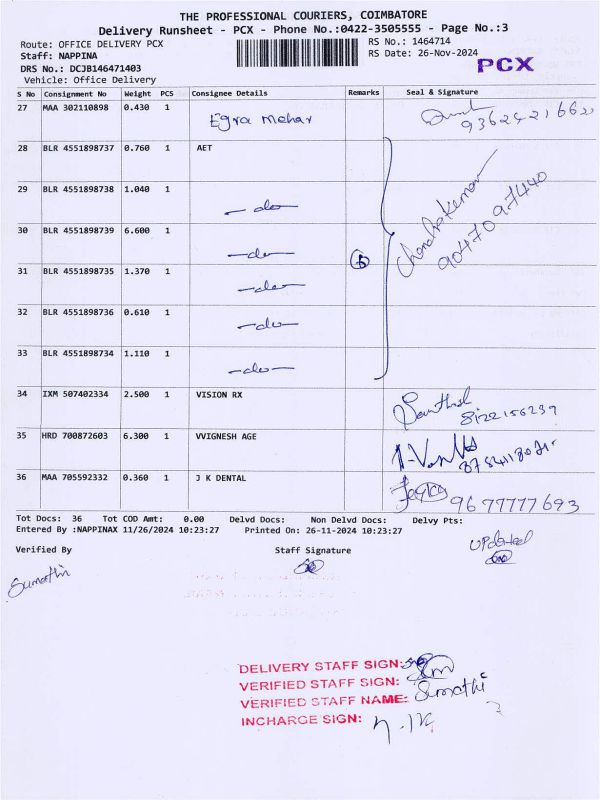 THE PROFESSIONAL COURIERS, COIMBATORE
Delivery Runsheet - PCX - Phone No.:0422-3505555 - Page No.:3
Route: OFFICE DELIVERY PCX RS No.: 1464714
Staff: NAPPINA RS Date: 26-Nov-2024
DRS No.: DCJB146471403 PCX
Vehicle: Office Delivery
S No Consignment No Weight PCS Consignee Details Remarks Seal & Signature
27 MAA 302110898 0.430 1 Egra Mehar
28 BLR 4551898737 0.760 1 AET
29 BLR 4551898738 1.040 1 -do-
30 BLR 4551898739 6.600 1 -do- 6 Chandrakumar
9047097440
31 BLR 4551898735 1.370 1 -do-
32 BLR 4551898736 0.610 1 -do-
33 BLR 4551898734 1.110 1 -do-
34 IXM 507402334 2.500 1 VISION RX
35 HRD 700872603 6.300 1 VVIGNESH AGE
36 MAA 705592332 0.360 1 J K DENTAL 9677777693
Tot Docs: 36 Tot COD Amt: 0.00 Delvd Docs: Non Delvd Docs: Delvy Pts:
Entered By :NAPPINAX 11/26/2024 10:23:27 Printed On: 26-11-2024 10:23:27
Verified By Staff Signature Updated
Sumathi
DELIVERY STAFF SIGN:
VERIFIED STAFF SIGN:
VERIFIED STAFF NAME: Sumathi
INCHARGE SIGN: